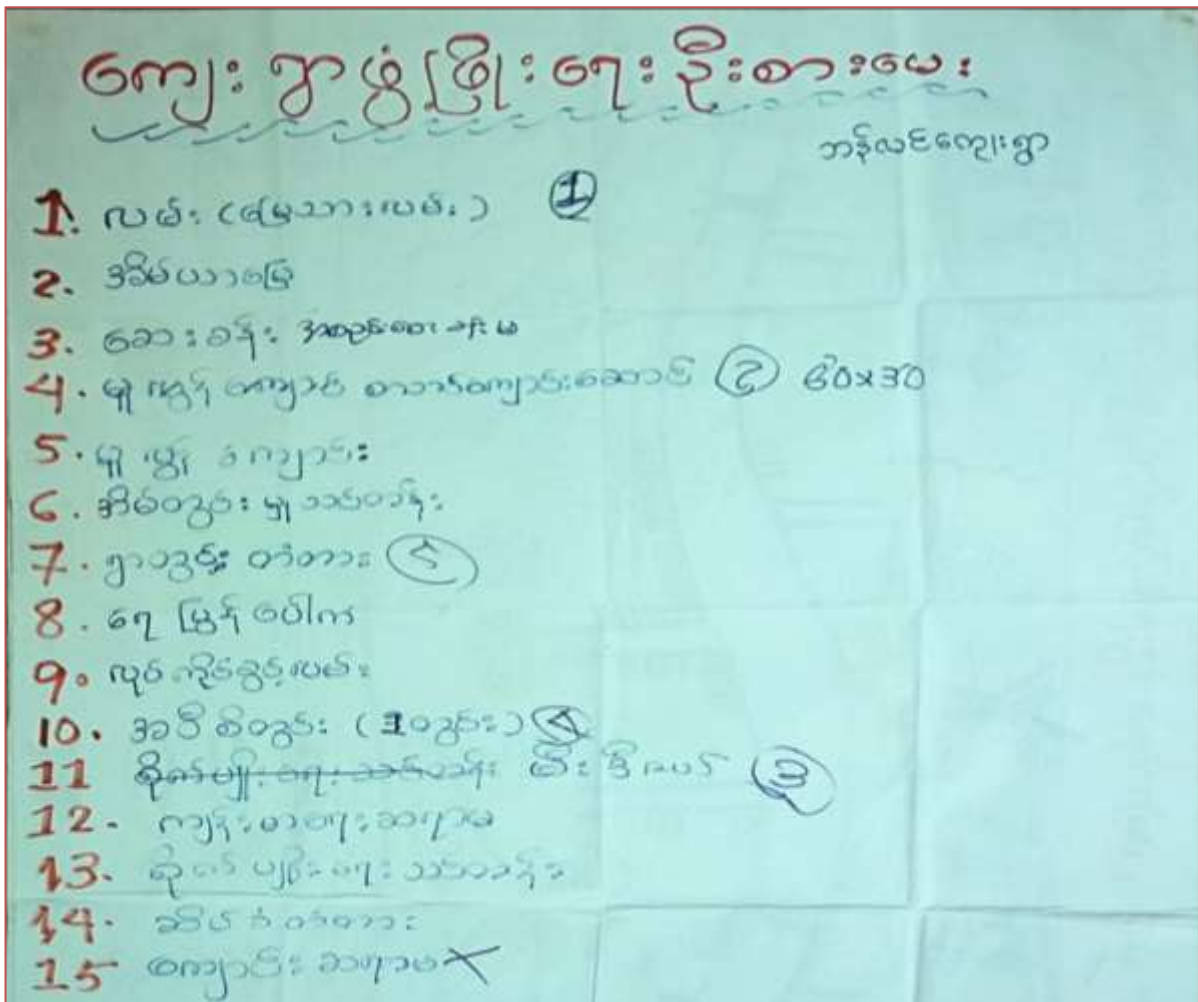 ကျေးရွာဖွံ့ဖြိုးရေးဦးစားပေး
ဘန်လင်ကျေးရွာ
1. လမ်း (မြေသားလမ်း) ①
2. အိမ်ယာမြေ
3. ဆေးခန်း
4. မူလွန်ကျောင် စာသင်ကျောင်းဆောင် ② 60x30
5. မူ
6. အိမ်တွင်းမှု သင်တန်း
7. ရွာတွင်း တံတား ၅
8. ရေမြွန်ပေါက
9. လုပ်ကိုင်ခွင့်လမ်း
10. အဝီစိတွင်း (1 တွင်း) ၄
11 စိုက်ပျိုးရေးသင်တန်း မီး ③
12. ကျန်းမာရေးဆရာမ
13. စိုက်ပျိုးရေးသင်တန်း
14. ဆိပ်ခံတံတား
15 ကျောင်းဆရာမ ×